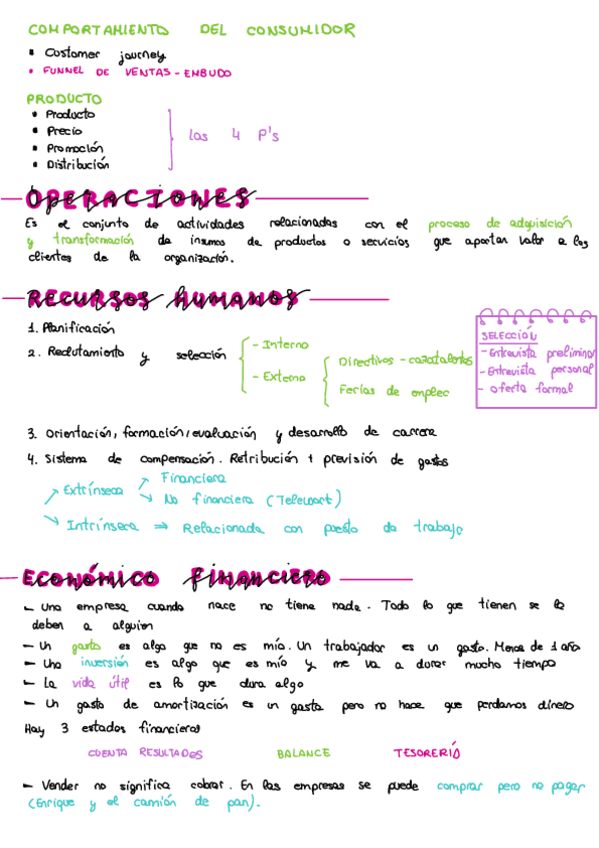 COMPORTAMIENTO DEL CONSUMIDOR
• Customer journey
• FUNNEL DE VENTAS - EMBUDO
PRODUCTO
• Producto
• Precio
• Promoción
• Distribución
las 4 P's
OPERACIONES
Es el conjunto de actividades relacionadas con el proceso de adquisición
y transformación de insumos de productos o servicios que aportan valor a los
clientes de la organización.
RECURSOS HUMANOS
1. Planificación
2. Reclutamiento y selección
- Interno
- Externo
Directivos - cazatalentos
Ferias de empleo
SELECCIÓN
- Entrevista preliminar
- Entrevista personal
- Oferta formal
3. Orientación, formación, evaluación y desarrollo de carrera
4. Sistema de compensación. Retribución + previsión de gastos
Extrínseca
Financiera
No financiera (Telework)
Intrínseca ⇒ Relacionada con puesto de trabajo
ECONÓMICO FINANCIERO
- Una empresa cuando nace no tiene nada. Todo lo que tienen se lo
deben a alguien
- Un gasto es algo que no es mío. Un trabajador es un gasto. Menos de 1 año
- Una inversión es algo que es mío y me va a durar mucho tiempo
- La vida útil es lo que dura algo
- Un gasto de amortización es un gasto pero no hace que perdamos dinero
Hay 3 estados financieros
CUENTA RESULTADOS BALANCE TESORERÍA
- Vender no significa cobrar. En las empresas se puede comprar pero no pagar
(Enrique y el camión de pan).